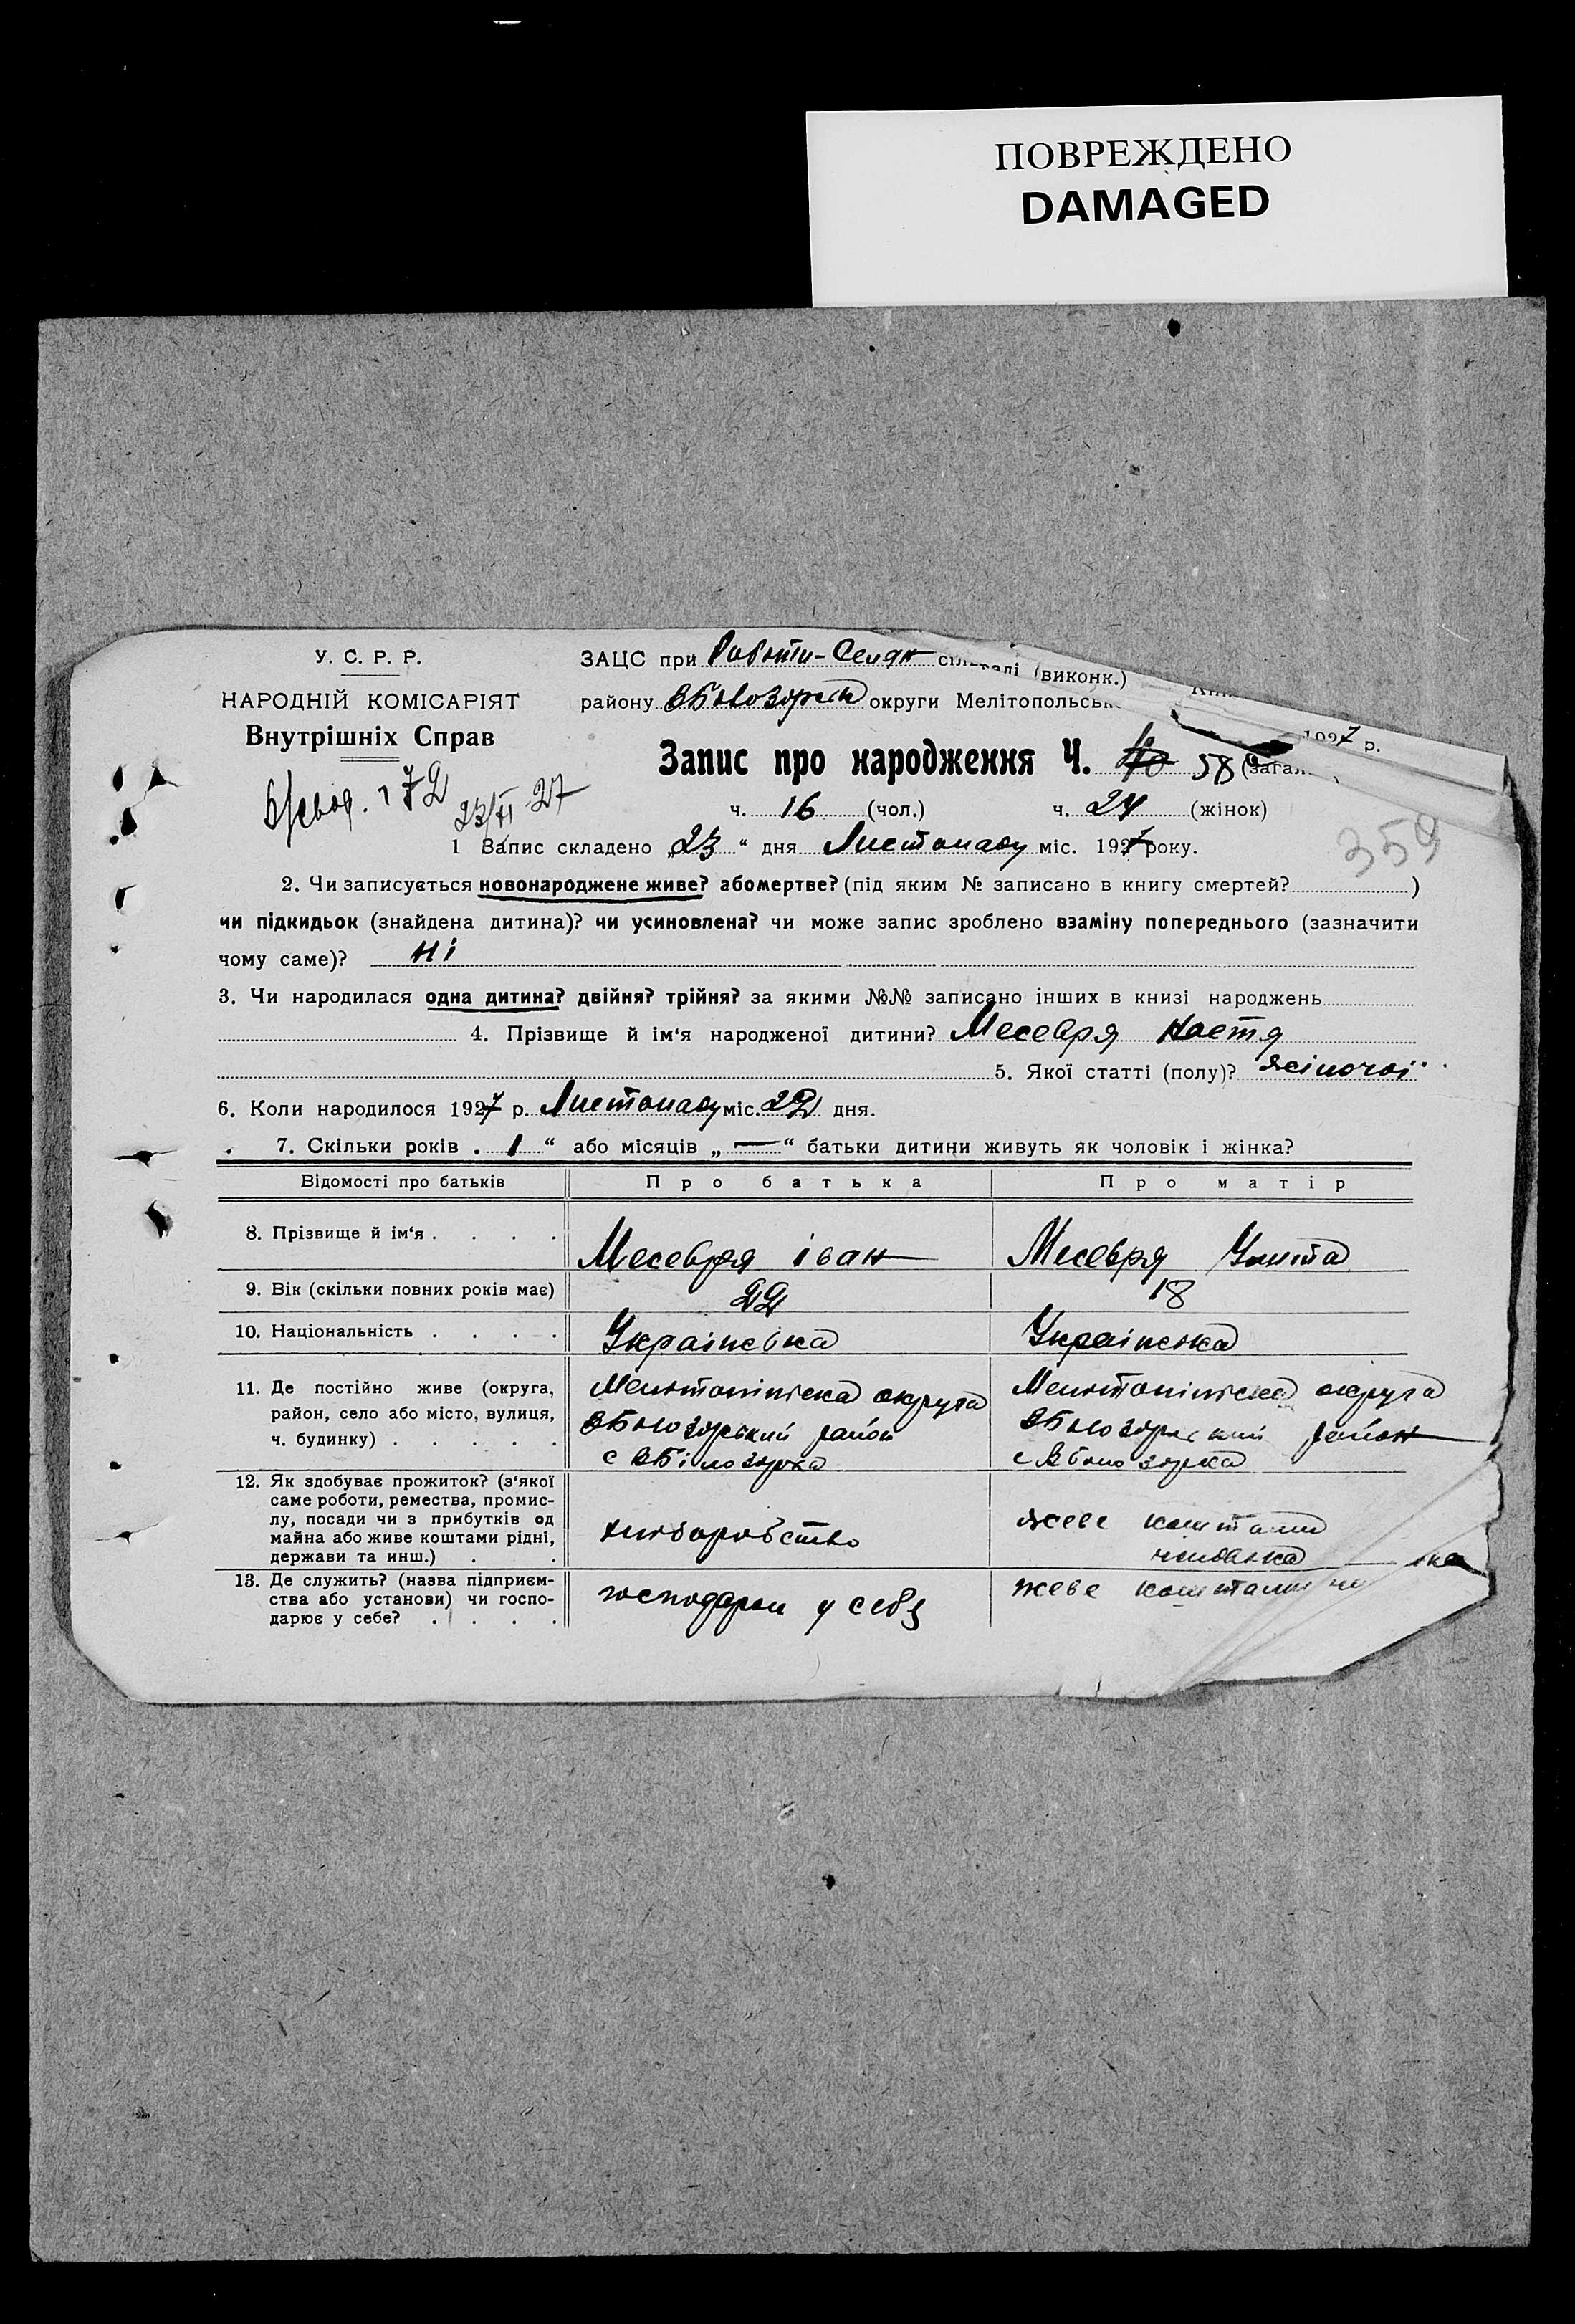 ПОВРЕЖДЕНО
DAMAGED
У. С. Р. Р.
НАРОДНІЙ КОМІСАРІЯТ
Внутрішніх Справ
ЗАЦС при (виконк.)
району округи Мелітопольськ
1927 р.
Запис про народження Ч. 40 58 (загал
172
23/XI 27
ч. 16 (чол.) ч. 24 (жінок)
359
1 Запис складено „23“ дня Листопаду міс. 1927 року.
2. Чи записується новонароджене живе? або мертве? (під яким № записано в книгу смертей? )
чи підкидьок (знайдена дитина)? чи усиновлена? чи може запис зроблено взаміну попереднього (зазначити
чому саме)? Ні
3. Чи народилася одна дитина? двійня? трійня? за якими №№ записано інших в книзі народжень
4. Прізвище й ім‘я народженої дитини? Месевря Настя
5. Якої статті (полу)? жіночої
6. Коли народилося 1927 р. Листопаду міс. 22 дня.
7. Скільки років „1“ або місяців „—“ батьки дитини живуть як чоловік і жінка?
Відомості про батьків Про батька Про матір
8. Прізвище й ім‘я . . . . Месевря іван Месевря
9. Вік (скільки повних років має) 22 18
10. Національність . . . . Українська Українська
11. Де постійно живе (округа, округа округа
район, село або місто, вулиця, район район
ч. будинку) . . . . . с ВБілозорка с
12. Як здобуває прожиток? (з‘якої
саме роботи, ремества, промис-
лу, посади чи з прибутків од хліборобство жеве коштами
майна або живе коштами рідні, чоловіка
держави та инш.) . .
13. Де служить? (назва підприєм- жеве коштами
ства або установи) чи госпо- у себя
дарює у себе? . . . .